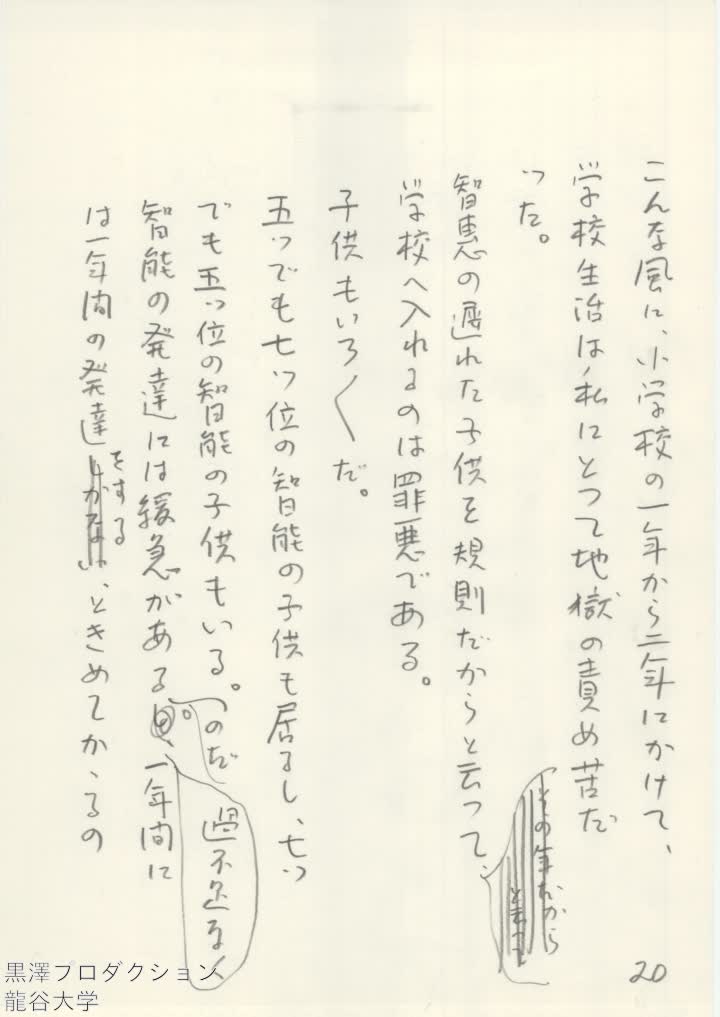 こんな風に、小学校の一年から二年にかけて、
学校生活は、私にとつて地獄の責め苦だ
つた。
智恵の遅れた子供を規則だからと云つて、
その年だから
と云つて
学校へ入れるのは罪悪である。
子供もいろ〱だ。
五つでも七つ位の智能の子供も居るし、七つ
でも五つ位の智能の子供もいる。
智能の発達には緩急がある
のだ
。
、一年間に
過不足なく
は一年間の発達
をする
しかない
、ときめてかゝるの
20
黒澤プロダクション
龍谷大学